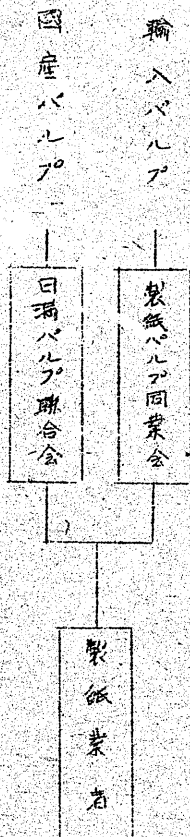 輸入パルプ
國産パルプ
製紙パルプ同業会
日満パルプ聯合会
製紙業者